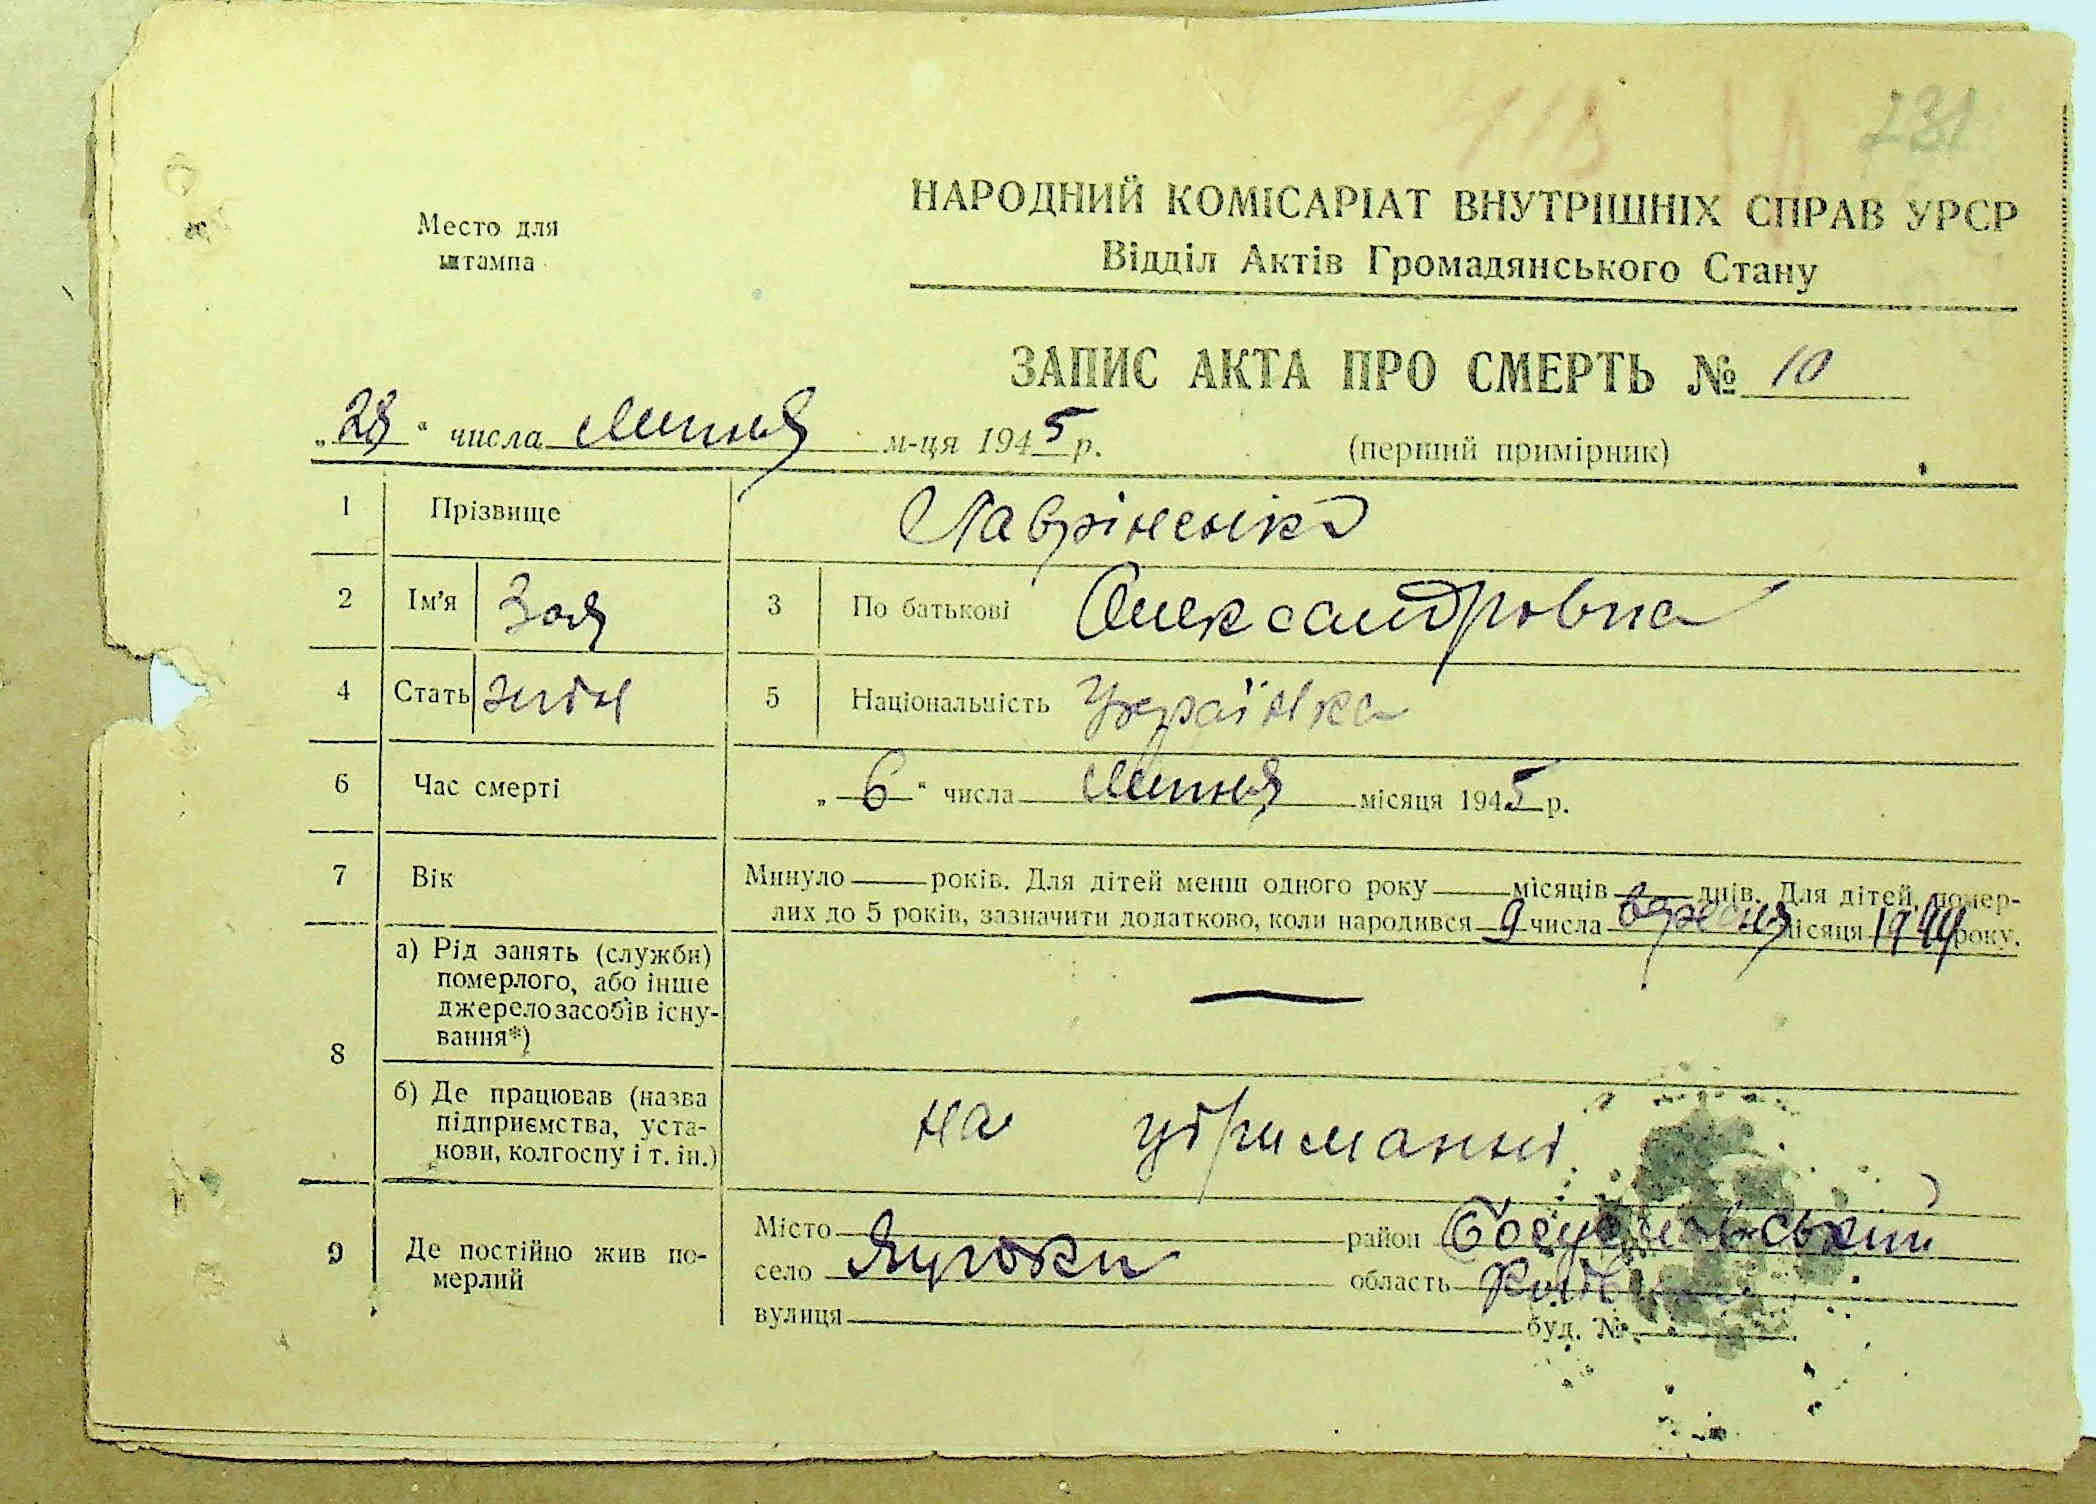 731
Место для
штампа
НАРОДНИЙ КОМІСАРІАТ ВНУТРІШНІХ СПРАВ УРСР
Відділ Актів Громадянського Стану
ЗАПИС АКТА ПРО СМЕРТЬ № 10
„28“ числа Липня м-ця 1945 р.
(перший примірник)
1 Прізвище Лавріненко
2 Ім’я Зоя 3 По батькові Олександровна
4 Стать жін 5 Національність Українка
6 Час смерті „6“ числа Липня місяця 1945 р.
7 Вік Минуло — років. Для дітей менш одного року — місяців — днів. Для дітей, помер-
лих до 5 років, зазначити додатково, коли народився 9 числа вересня місяця 1944 року.
8 а) Рід занять (служби)
померлого, або інше
джерело засобів існу-
вання*) —
б) Де працював (назва
підприємства, уста-
нови, колгоспу і т. ін.) на утриманні
9 Де постійно жив по-
мерлий
Місто район
село область
вулиця буд. №